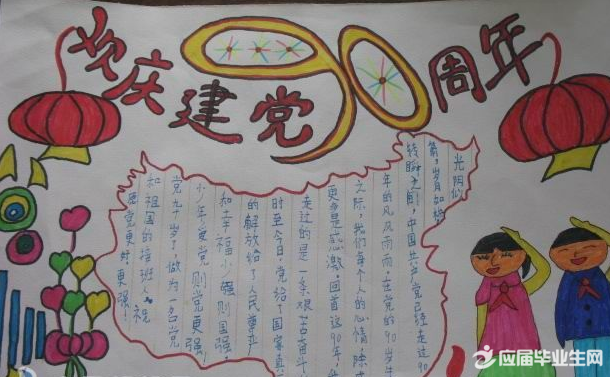 欢庆建党90周年
光阴似
箭,岁月如梭
转瞬之间,中国共产党已经走过90
年的风风雨雨,在党的90岁生
之际,我们每个人的心情,除
更多是感激,回首这90年,
走过的是一条艰苦奋斗
时至今日,党给了国家真
的解放给了人民尊严
知幸福少强则国强,
少年爱党则党更强,
党九十岁了,做为一名党
和祖国的接班人,祝
愿党更好、更强!
应届毕业生网